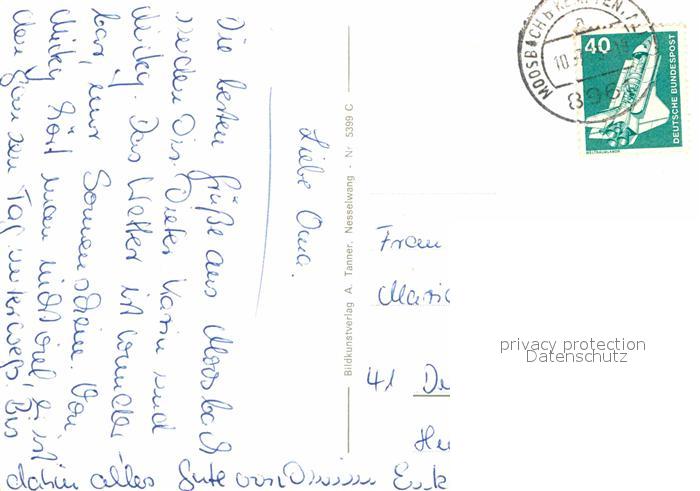 Liebe Oma.
Die besten Grüße aus Moosbach
senden Dir Dieter Karin und
Micky. Das Wetter ist wunder
bar, nur Sonnenschein. Von
Micky hört man nicht viel, er ist
den ganzen Tag unterwegs. Bis
dahin alles Gute von
Bildkunstverlag A. Tanner, Nesselwang - Nr. 5399 C
MOOSBACH b KEMPTEN
896
40
DEUTSCHE BUNDESPOST
WELTRAUMLABOR
Frau
41 Du
privacy protection
Datenschutz